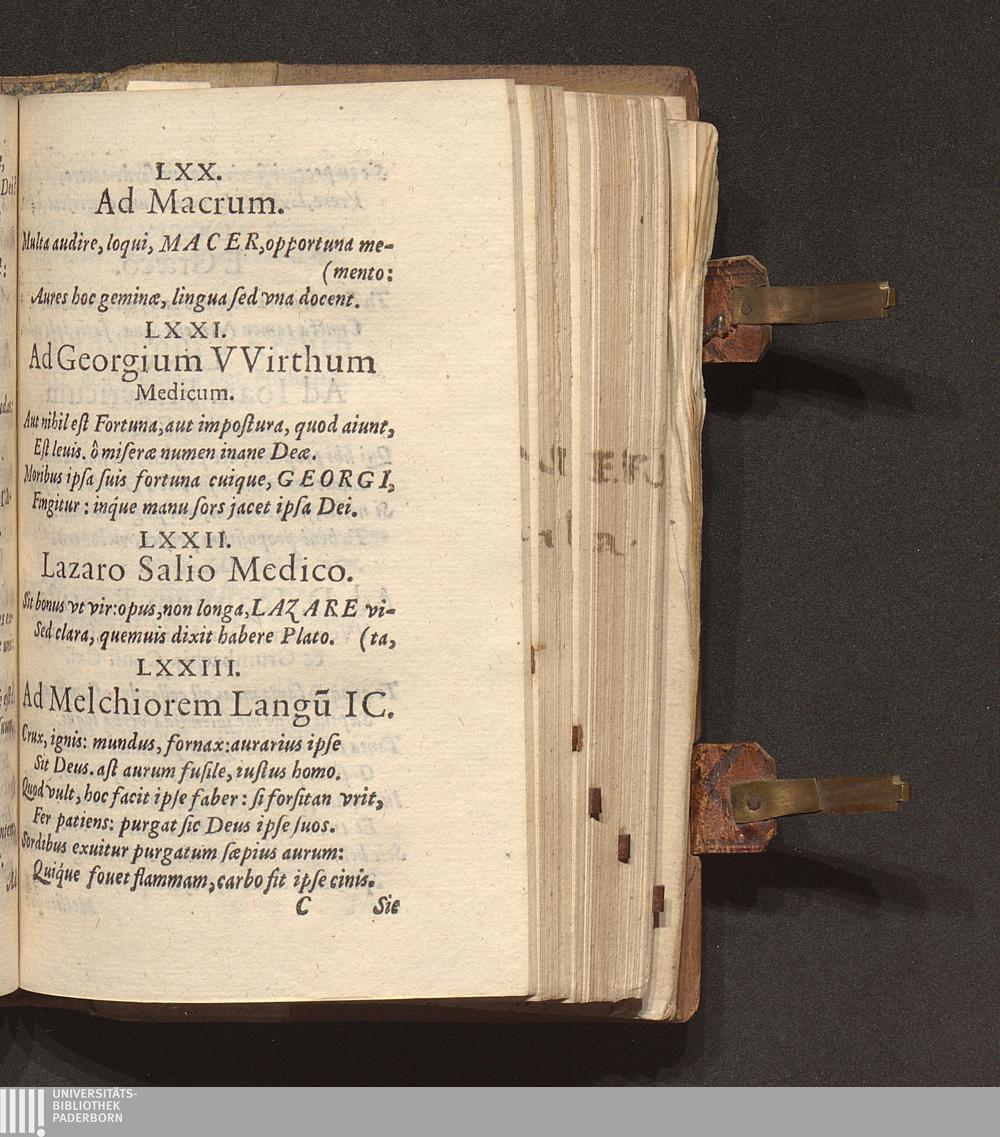 LXX.
Ad Macrum.
Multa audire, loqui, MACER, opportuna me-
(mento:
Aures hoc geminæ, lingua ſed vna docent.
LXXI.
Ad Georgium VVirthum
Medicum.
Aut nihil eſt Fortuna, aut impoſtura, quod aiunt,
Eſt leuis. ô miſeræ numen inane Deæ.
Moribus ipſa ſuis fortuna cuique, GEORGI,
Fingitur: inq́ue manu ſors jacet ipſa Dei.
LXXII.
Lazaro Salio Medico.
Sit bonus vt vir: opus, non longa, LAZARE vi-
Sed clara, quemuis dixit habere Plato. (ta,
LXXIII.
Ad Melchiorem Langū IC.
Crux, ignis: mundus, fornax: aurarius ipſe
Sit Deus. aſt aurum fuſile, iuſtus homo.
Quod vult, hoc facit ipſe faber: ſi forſitan vrit,
Fer patiens: purgat ſic Deus ipſe ſuos.
Sordibus exuitur purgatum ſæpius aurum:
Quiq́ue fouet flammam, carbo fit ipſe cinis.
C Sic
UNIVERSITÄTS-
BIBLIOTHEK
PADERBORN